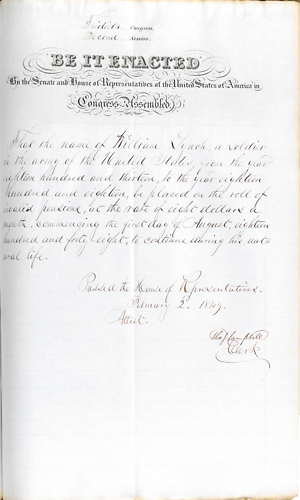 Thirtieth Congress
Second Session.
BE IT ENACTED
By the Senate and House of Representatives of the United States of America in
Congress Assembled,
That the name of William Lynch, a soldier
in the army of the United States, from the year
eighteen hundred and thirteen, to the year eighteen
hundred and eighteen, be placed on the roll of
invalid pensions, at the rate of eight dollars a
month, commencing the first day of August, eighteen
hundred and forty-eight, to continue during his nat-
ural life.
Passed the House of Representatives.
February 2. 1849.
Attest.
Tho. J. Campbell
Clerk